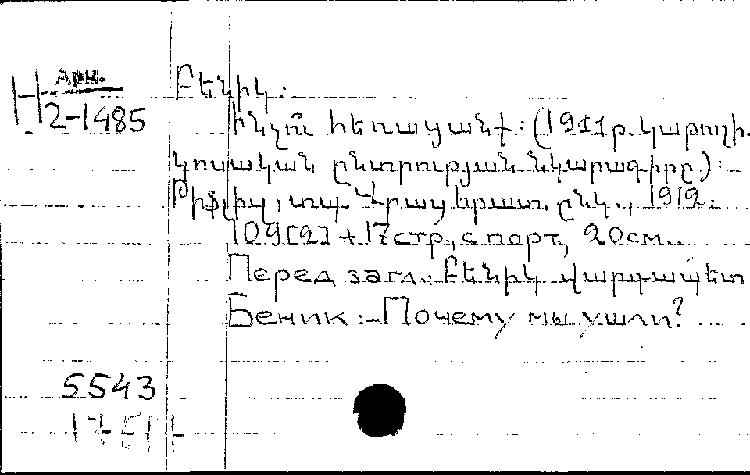 Арм.
Н
2-1485
Բենիկ.
Ինչու՞ հեռացանք: (1911թ. կաթողի-
կոսական ընտրության նկարագիրը):
Թիֆլիս, տպ. Վրաց հրատ. ընկ., 1912.
109[2] + 17 стр., с порт, 20см.
Перед загл.: Բենիկ վարդապետ
Беник. - Почему мы ушли?
5543